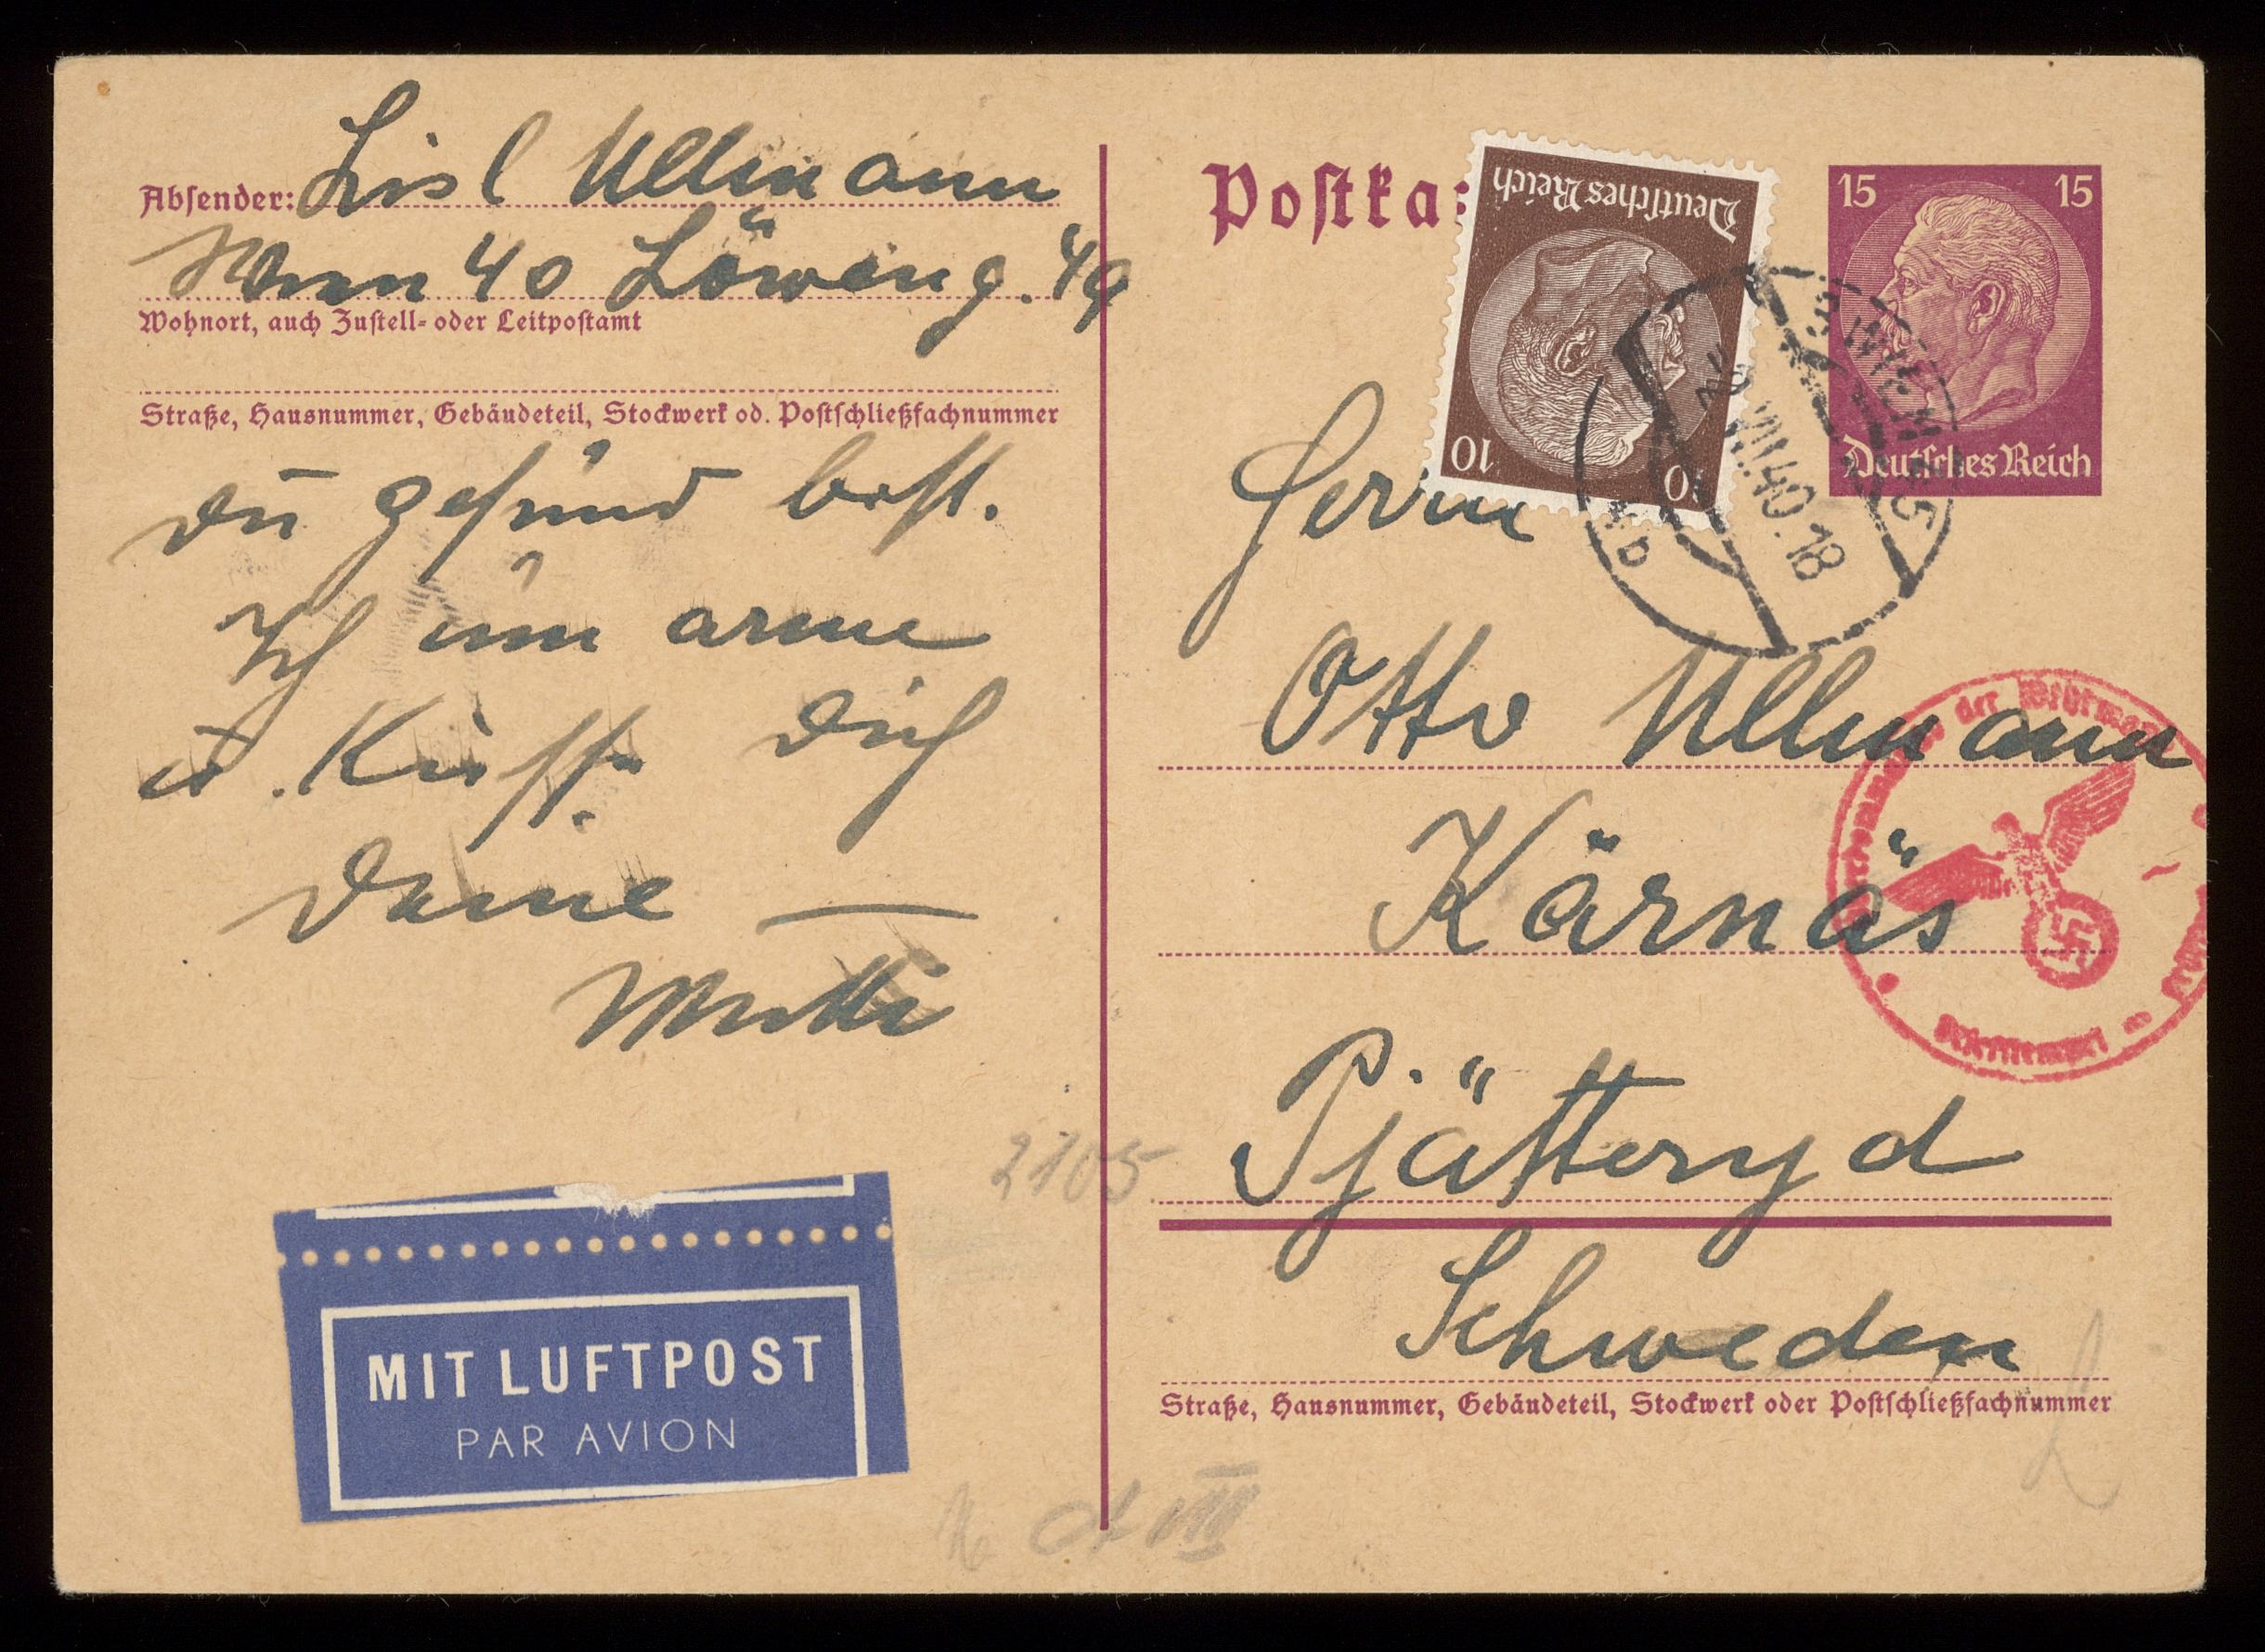 Absender: Lisl Ullmann
Wien 40 Löweng. 49
Wohnort, auch Zustell- oder Leitpostamt
Straße, Hausnummer, Gebäudeteil, Stockwerk od. Postschließfachnummer
Du gesund bist.
Ich um arme
u. Küsse Dich
Deine —
Mutti
MIT LUFTPOST
PAR AVION
2105
Postka
Deutsches Reich
10 10
15 15
Deutsches Reich
WIEN
VII.40.18
b
Herrn
Otto Ullmann
Kärnäs
Pjätteryd
Schweden
Straße, Hausnummer, Gebäudeteil, Stockwerk oder Postschließfachnummer
der Wehrmacht
VIII